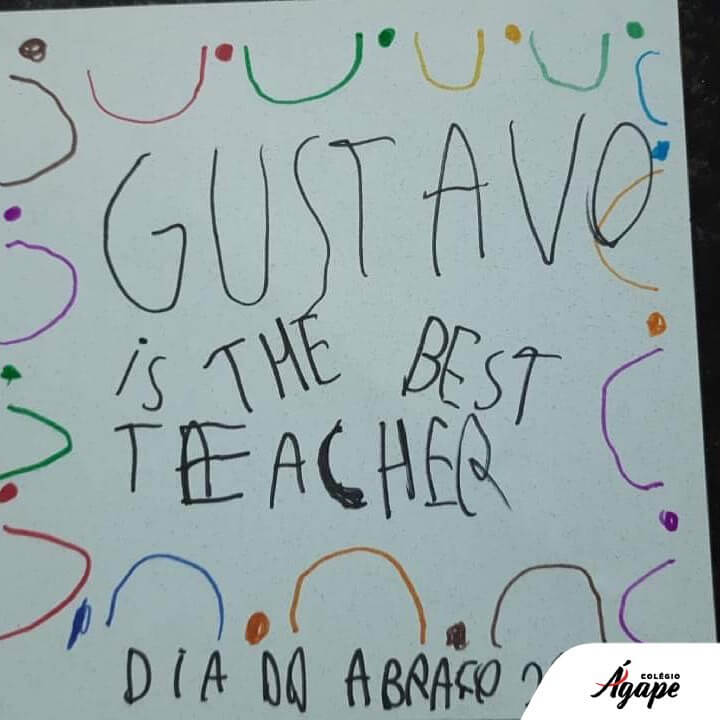 GUSTAVO
is THE BEST
TEACHER
DIA DO ABRAÇO
COLÉGIO
Ágape